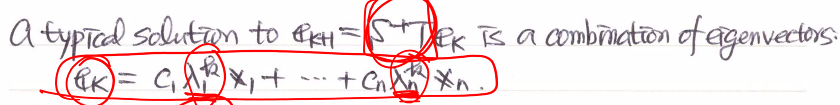 A typical solution to e_{k+1} = S⁻¹T e_k is a combination of eigenvectors:
e_k = c₁λ₁ᵏ x₁ + ··· + cₙλₙᵏ xₙ.